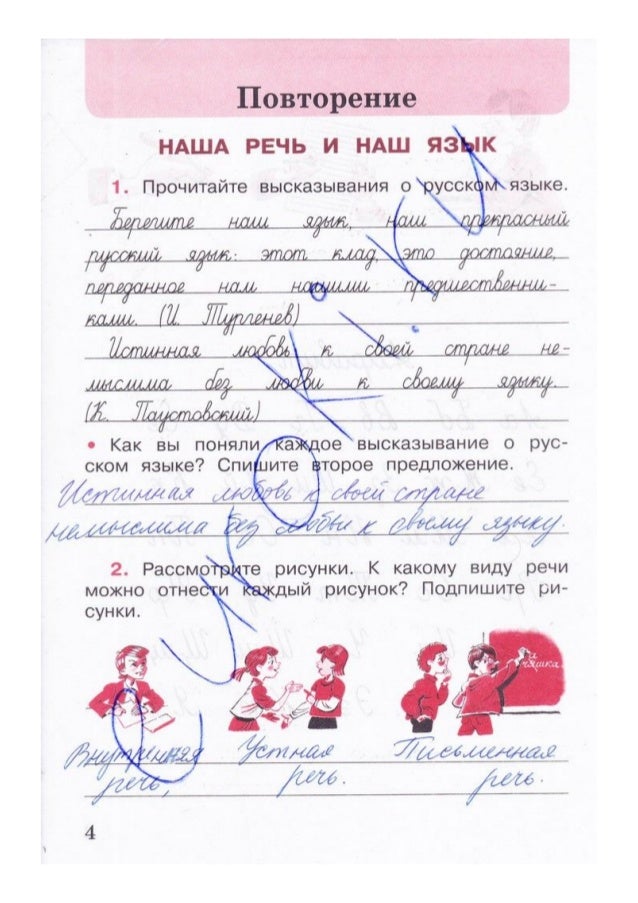 Повторение
НАША РЕЧЬ И НАШ ЯЗЫК
1. Прочитайте высказывания о русском языке.
Берегите наш язык, наш прекрасный
русский язык: этот клад, это достояние,
переданное нам нашими предшественни-
ками. (И. Тургенев)
Истинная любовь к своей стране не-
мыслима без любви к своему языку.
(К. Паустовский)
• Как вы поняли каждое высказывание о рус-
ском языке? Спишите второе предложение.
Истинная любовь к своей стране
немыслима без любви к своему языку.
2. Рассмотрите рисунки. К какому виду речи
можно отнести каждый рисунок? Подпишите ри-
сунки.
Внутренняя Устная Письменная
речь, речь. речь.
4